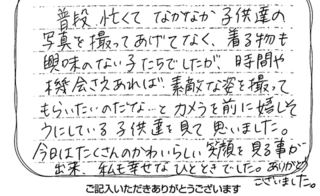 普段 忙くて なかなか 子供達の
写真を撮ってあげてなく、着る物も
興味のない子たちでしたが、時間や
機会さえあれば 素敵な姿を撮って
もらいたいのだな…と カメラを前に嬉しそ
うにしている 子供達を見て 思いました。
今日はたくさんのかわいらしい 笑顔を見る事が
出来、私も幸せな ひとときでした。ありがとう
ございました。
ご記入いただきありがとうございます